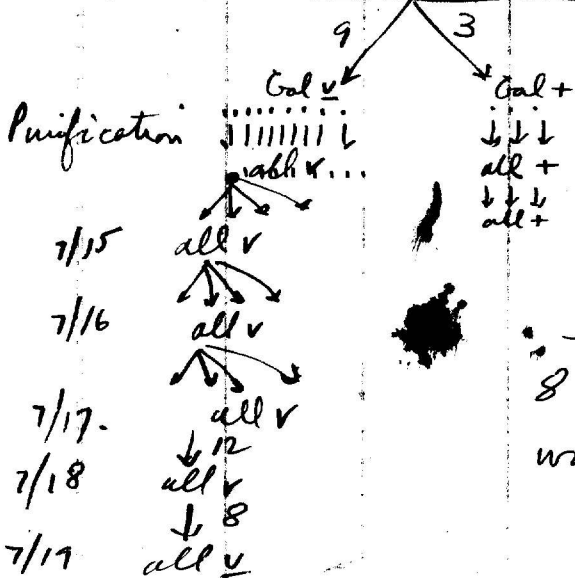 9 3
Gal v Gal +
Purification
all v... all +
all +
7/15 all v
7/16 all v
8
7/17. all v
12
7/18 all v
8
7/19 all v